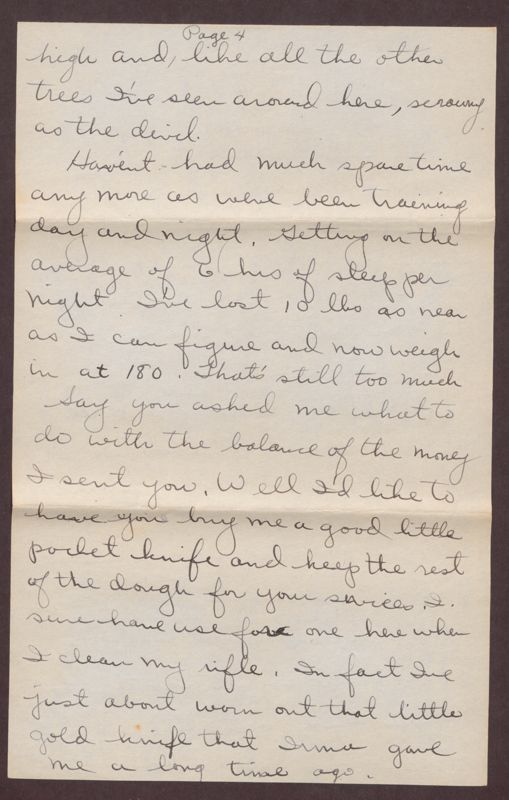 Page 4
high and, like all the other
trees I've seen around here, scrawny
as the devil.
Haven't had much spare time
any more as were been training
day and night. Getting on the
average of 6 hrs of sleep per
night I've lost 10 lbs as near
as I can figure and now weigh
in at 180. That's still too much
Say you asked me what to
do with the balance of the money
I sent you. Well I'd like to
have you buy me a good little
pocket knife and keep the rest
of the dough for your services. I
sure have use for one here when
I clean my rifle. In fact I've
just about worn out that little
gold knife that Irma gave
me a long time ago.